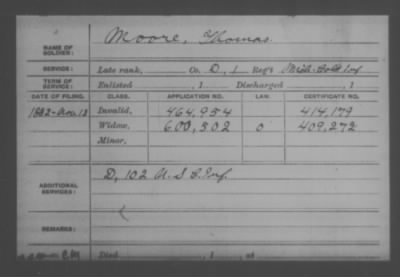 NAME OF SOLDIER: Moore, Thomas.
SERVICE: Late rank, Co. D, 1 Reg't Mich. Col'd Inf
TERM OF SERVICE: Enlisted , 1 Discharged , 1
DATE OF FILING. CLASS. APPLICATION NO. LAW. CERTIFICATE NO.
1882-Nov. 13 Invalid, 464,954 414,179
Widow, 600,302 0 409,272
Minor,
ADDITIONAL SERVICES: D, 102 U.S.C. Inf.
REMARKS:
Died , 1 , at